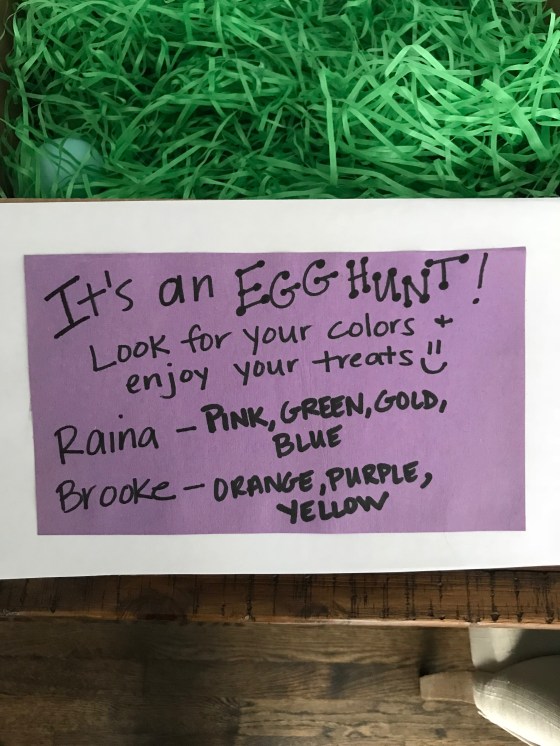 It's an EGG HUNT!
Look for your colors +
enjoy your treats
Raina - PINK, GREEN, GOLD,
BLUE
Brooke - ORANGE, PURPLE,
YELLOW